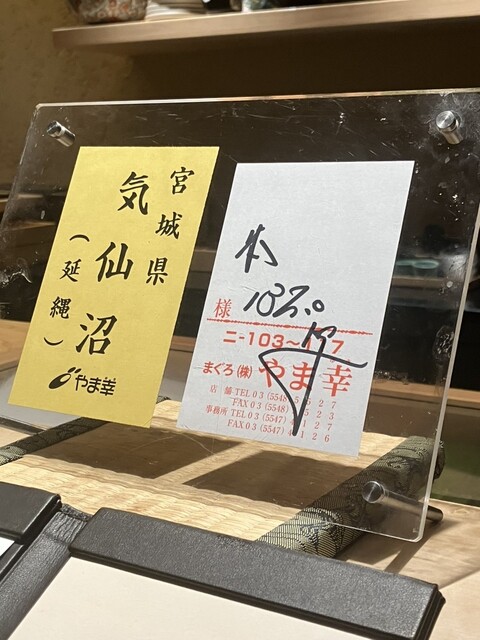 宮城県
気仙沼
（延縄）
やま幸
様
187.0
ニ-103~117
まぐろ(株) やま幸
店舗 TEL 03 (5548)
FAX 03 (5548)
事務所 TEL 03 (5547)
FAX 03 (5547)